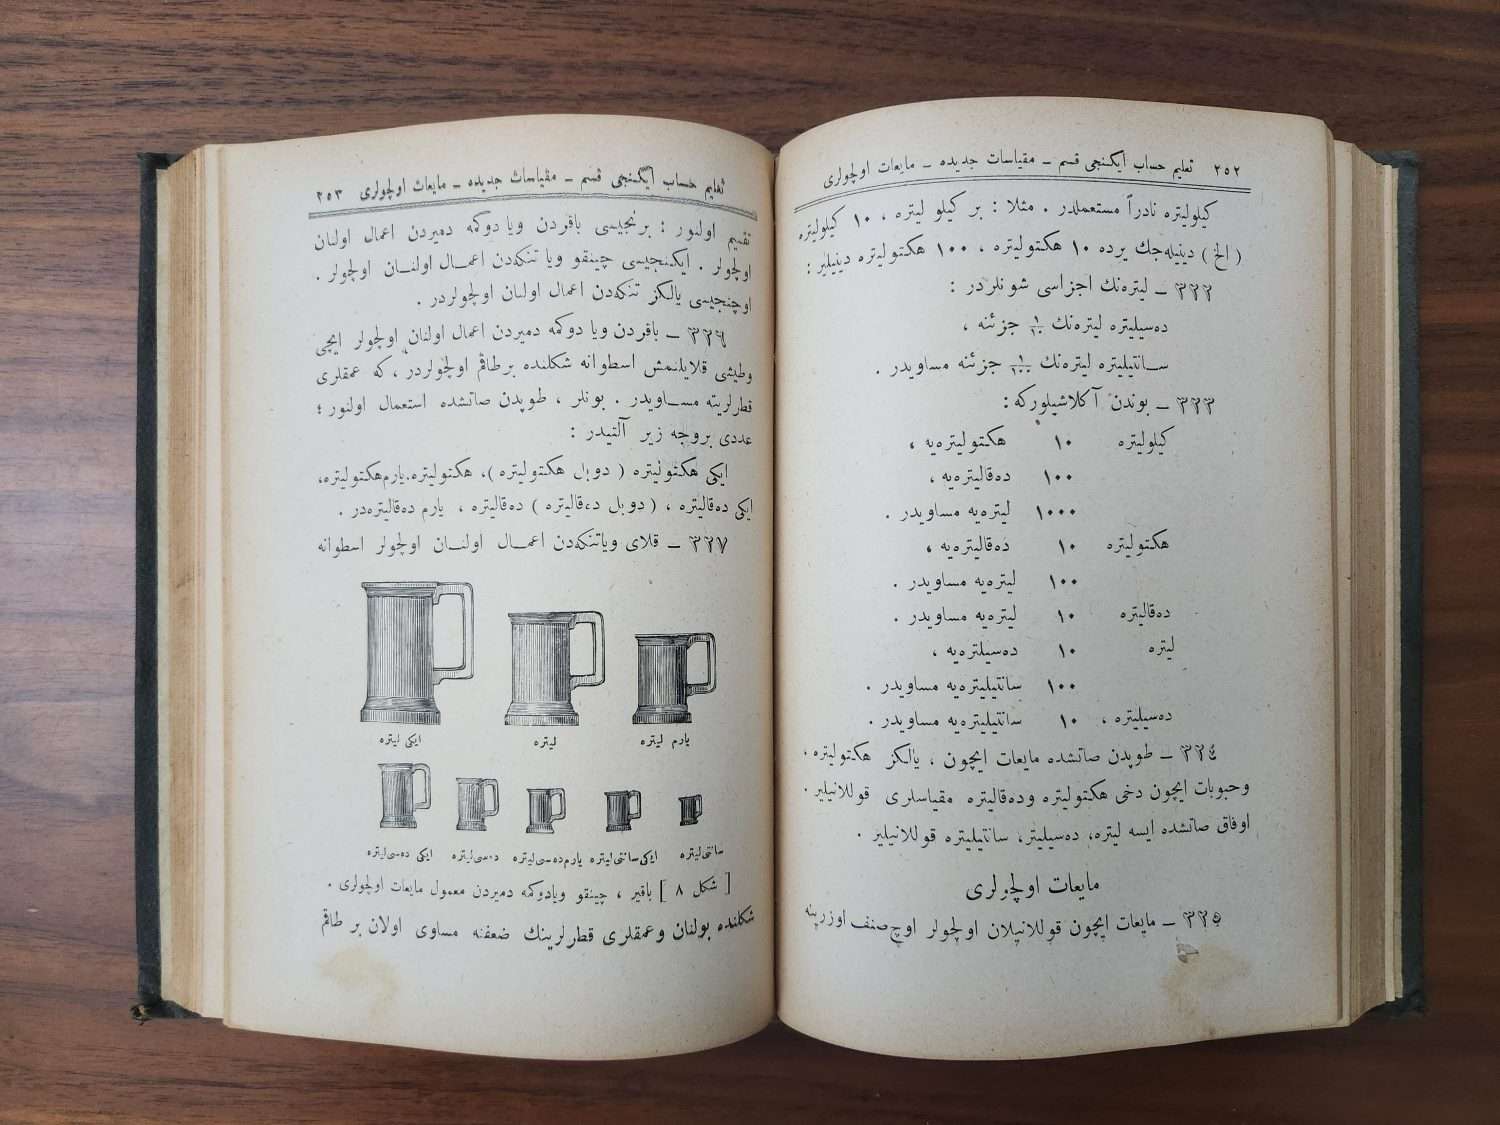 ٢٥٢ تعليم حساب ايكنجى قسم ــ مقياسات جديده ــ مايعات اولچولرى
كيلوليتره نادراً مستعملدر . مثلا : بر كيلو ليتره ، ١٠ كيلوليتره
( الخ ) دينيله‌جك يرده ١٠ هكتوليتره ، ١٠٠ هكتوليتره دينيلير :
٣٢٢ ــ ليتره‌نك اجزاسى شونلردر :
ده‌سيليتره ليتره‌نك ١/١٠ جزئنه ،
سـانتيليتره ليتره‌نك ١/١٠٠ جزئنه مساويدر .
٣٢٣ ــ بوندن آكلاشيلوركه :
كيلوليتره ١٠ هكتوليتره‌يه ،
١٠٠ ده‌قاليتره‌يه ،
١٠٠٠ ليتره‌يه مساويدر .
هكتوليتره ١٠ ده‌قاليتره‌يه ،
١٠٠ ليتره‌يه مساويدر .
ده‌قاليتره ١٠ ليتره‌يه مساويدر .
ليتره ١٠ ده‌سيلتره‌يه ،
١٠٠ سانتيليتره‌يه مساويدر .
ده‌سيليتره ، ١٠ سانتيليتره‌يه مساويدر .
٣٢٤ ــ طوپدن صاتشده مايعات ايچون ، يالكز هكتوليتره ،
وحبوبات ايچون دخى هكتوليتره وده‌قاليتره مقياسلرى قوللانيلير .
اوفاق صاتشده ايسه ليتره، ده‌سيليتر، سانتيليتره قوللانيلير .
مايعات اولچولرى
٣٢٥ ــ مايعات ايچون قوللانيلان اولچولر اوچ صنف اوزرينه
تعليم حساب ايكنجى قسم ــ مقياسات جديده ــ مايعات اولچولرى ٢٥٣
تقسيم اولنور : برنجيسى باقردن ويا دوكمه دميردن اعمال اولنان
اولچولر . ايكنجيسى چينقو ويا تنكه‌دن اعمـال اولنـان اولچولر .
اوچنجيسى يالكز تنكه‌دن اعمال اولنان اولچولردر .
٣٢٦ ــ باقردن ويا دوكمه دميردن اعمال اولنان اولچولر ايچى
وطيشى قلايلنمش اسطوانه شكلنده برطاقم اولچولردر ، كه عمقلرى
قطرلرينه مسـاويدر . بونلر ، طوپدن صاتشده استعمال اولنور ؛
عددى بروجه زير آلتيدر :
ايكى هكتوليتره ( دوبل هكتوليتره )، هكتوليتره، يارم هكتوليتره،
ايكى ده‌قاليتره ، ( دوبل ده‌قاليتره ) ده‌قاليتره ، يارم ده‌قاليتره‌در .
٣٢٧ ــ قلاى وياتنكه‌دن اعمـال اولنـان اولچولر اسطوانه
يارم ليتره ليتره ايكى ليتره
سانتى‌ليتره ايكى سانتى‌ليتره يارم ده‌سى‌ليتره ده‌سى‌ليتره ايكى ده‌سى‌ليتره
[ شكل ٨ ] باقير ، چينقو ويادوكمه دميردن معمول مايعات اولچولرى .
شكلنده بولنان وعمقلرى قطرلرينك ضعفنه مساوى اولان بر طاقم